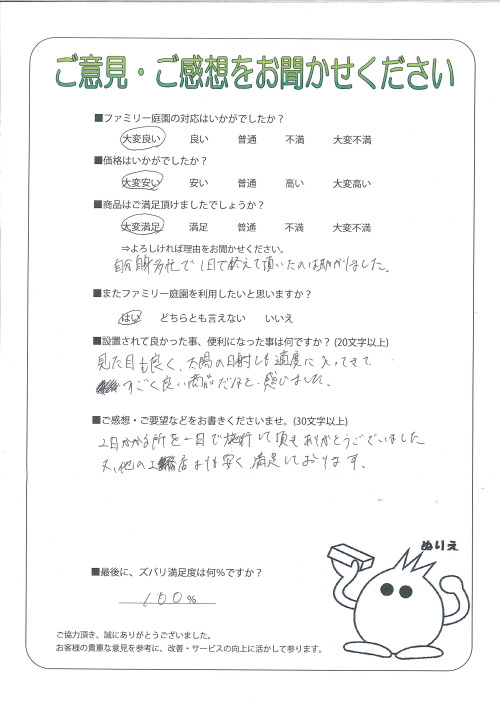 ご意見・ご感想をお聞かせください
■ファミリー庭園の対応はいかがでしたか？
大変良い 良い 普通 不満 大変不満
■価格はいかがでしたか？
大変安い 安い 普通 高い 大変高い
■商品はご満足頂けましたでしょうか？
大変満足 満足 普通 不満 大変不満
⇒よろしければ理由をお聞かせください。
1日で終えて頂いたのは助かりました。
■またファミリー庭園を利用したいと思いますか？
はい どちらとも言えない いいえ
■設置されて良かった事、便利になった事は何ですか？(20文字以上)
見た目も良く、太陽の日射しも適度に入ってきて
すごく良い商品だなと感じました。
■ご感想・ご要望などをお書きくださいませ。(30文字以上)
2日かかる所を一日で施行して頂きありがとうございました
又、他の工務店よりも安く満足しております。
ぬりえ
■最後に、ズバリ満足度は何%ですか？
100%
ご協力頂き、誠にありがとうございました。
お客様の貴重な意見を参考に、改善・サービスの向上に活かして参ります。